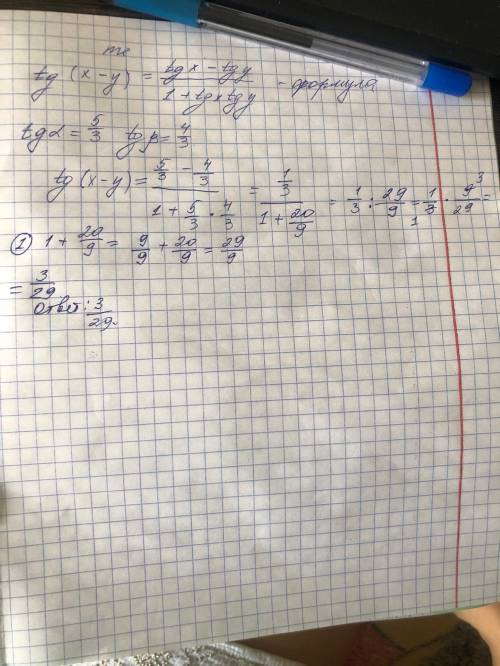 те
tg (x-y) = (tgx - tgy)/(1 + tgxtgy) - формула
tgα = 5/3 tgβ = 4/3
tg(x-y) = (5/3 - 4/3)/(1 + 5/3 · 4/3) = (1/3)/(1 + 20/9) = 1/3 : 29/9 = 1/3 · 9/29 =
1) 1 + 20/9 = 9/9 + 20/9 = 29/9
= 3/29
Ответ: 3/29.